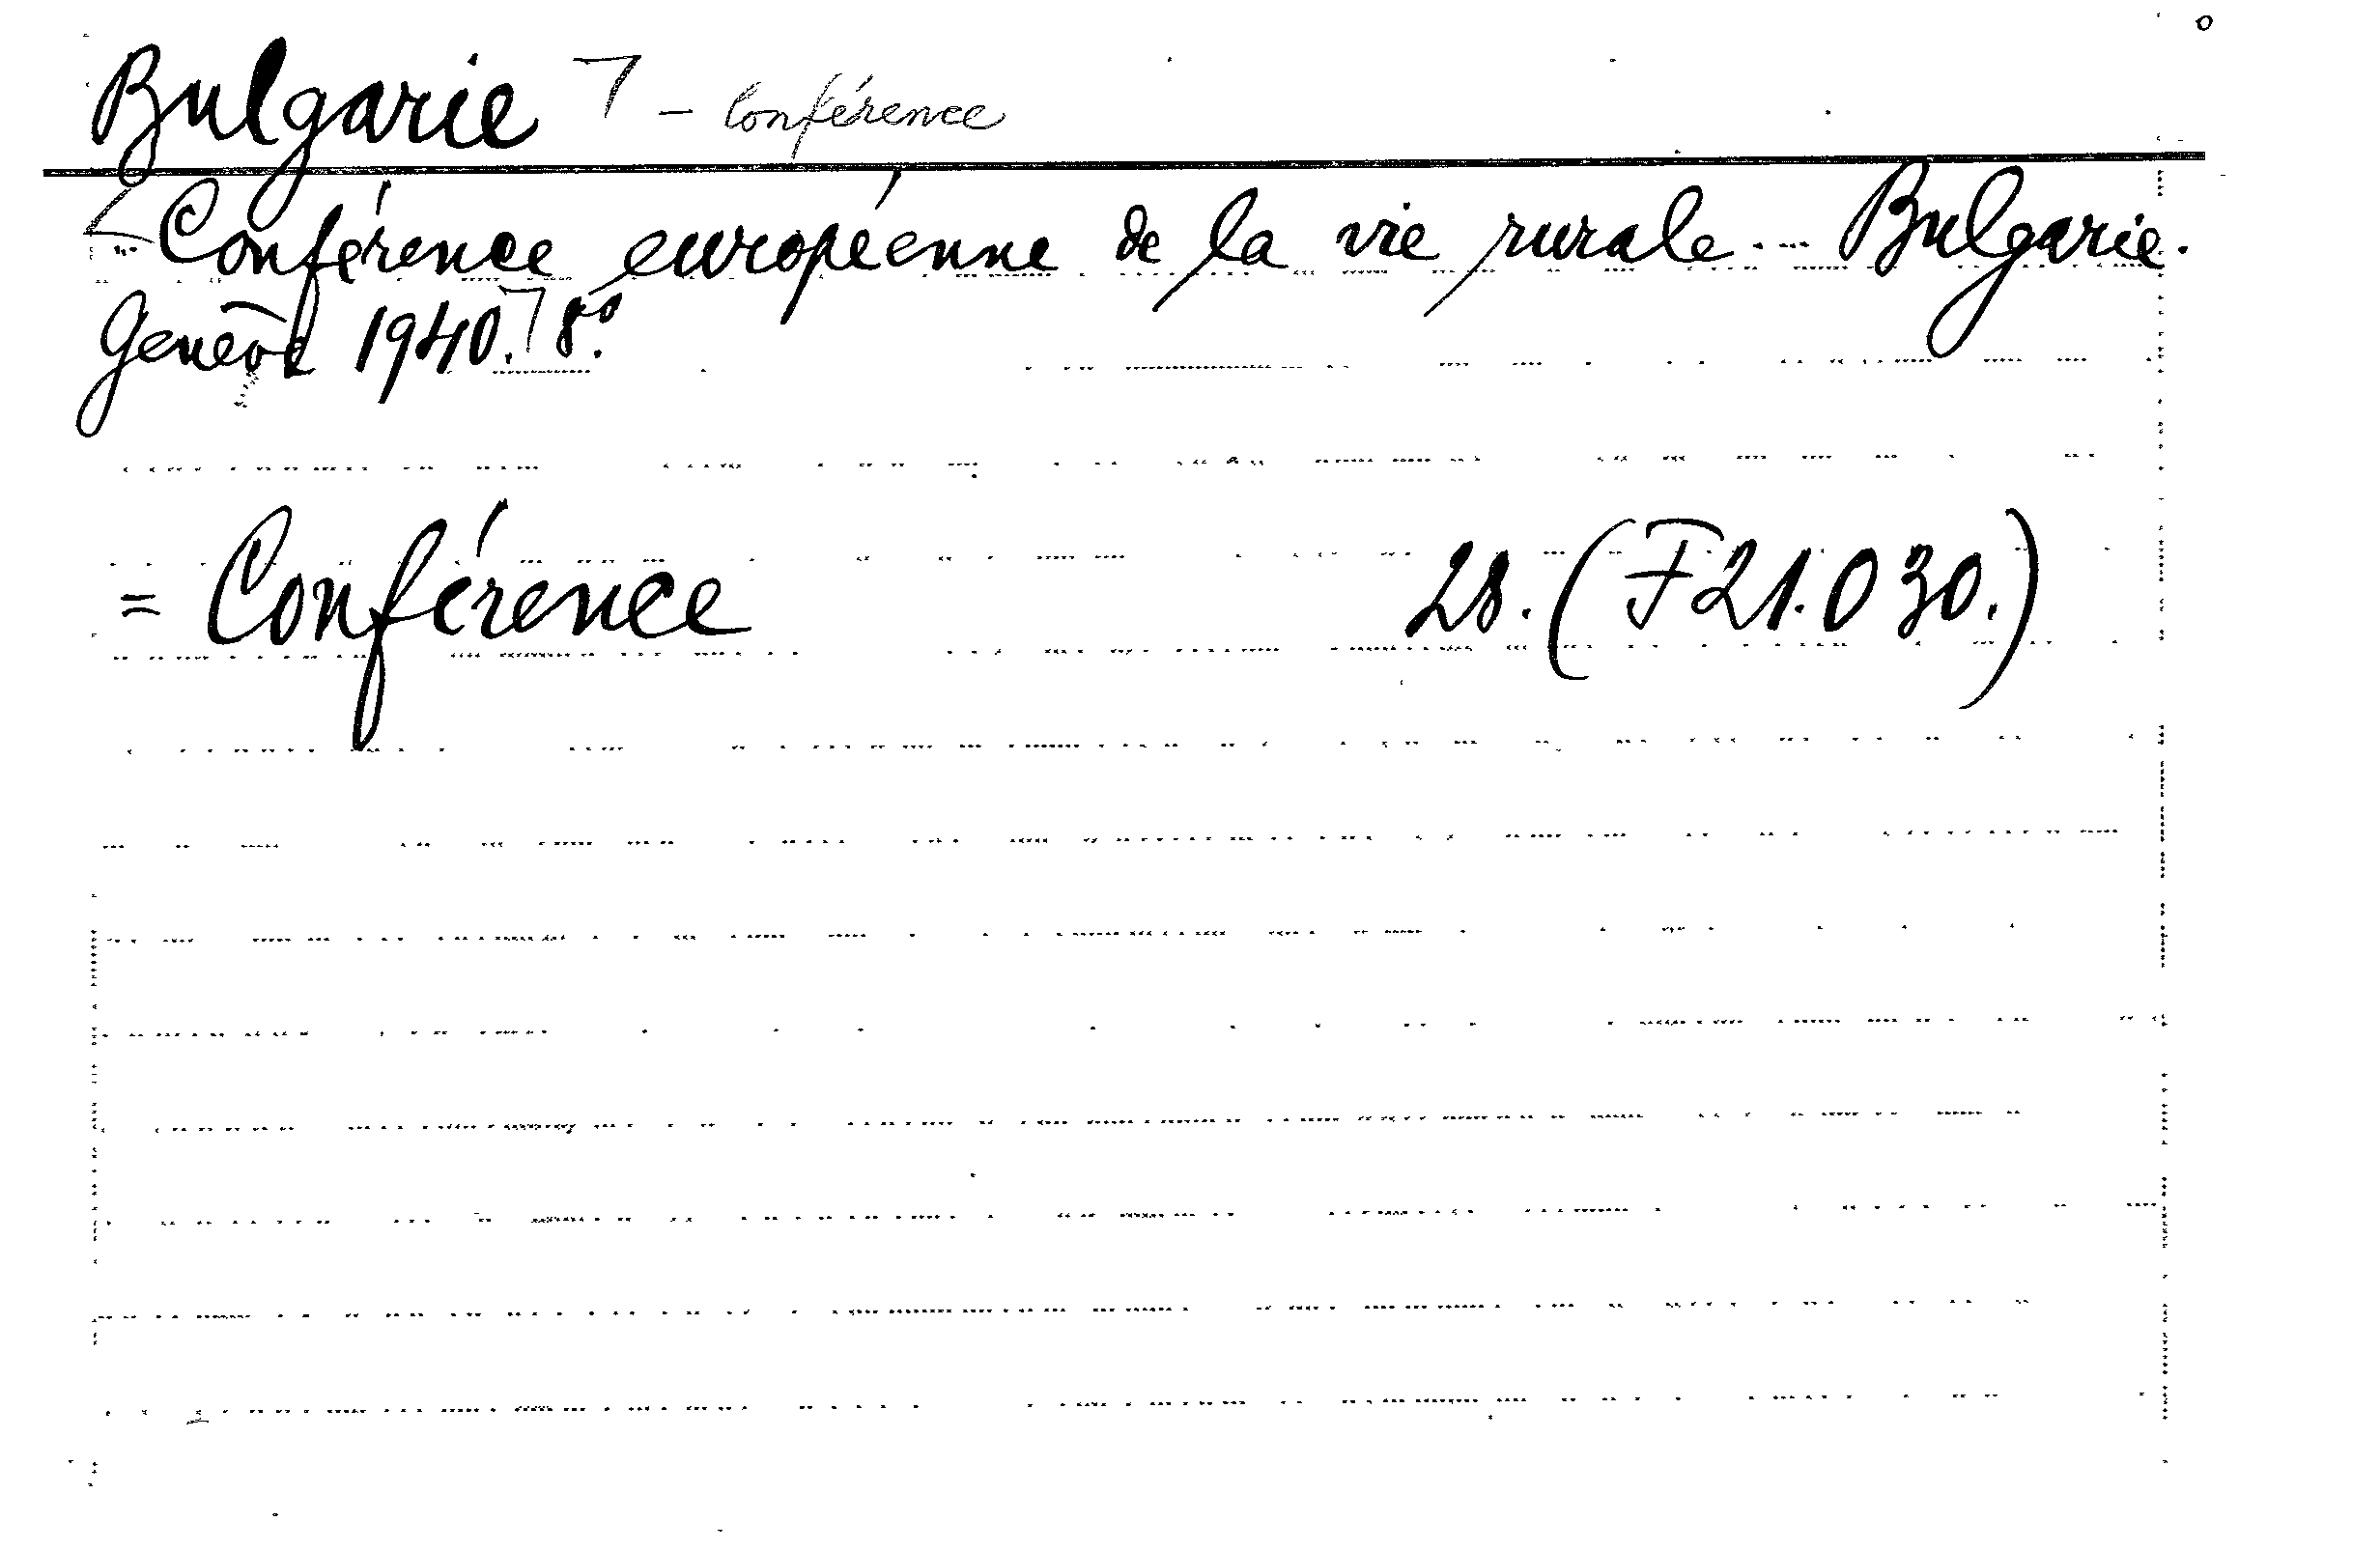 Bulgarie - Conférence
Conférence européenne de la vie rurale... Bulgarie.
Genève 1940. 8º.
= Conférence 28. (F21.030.)